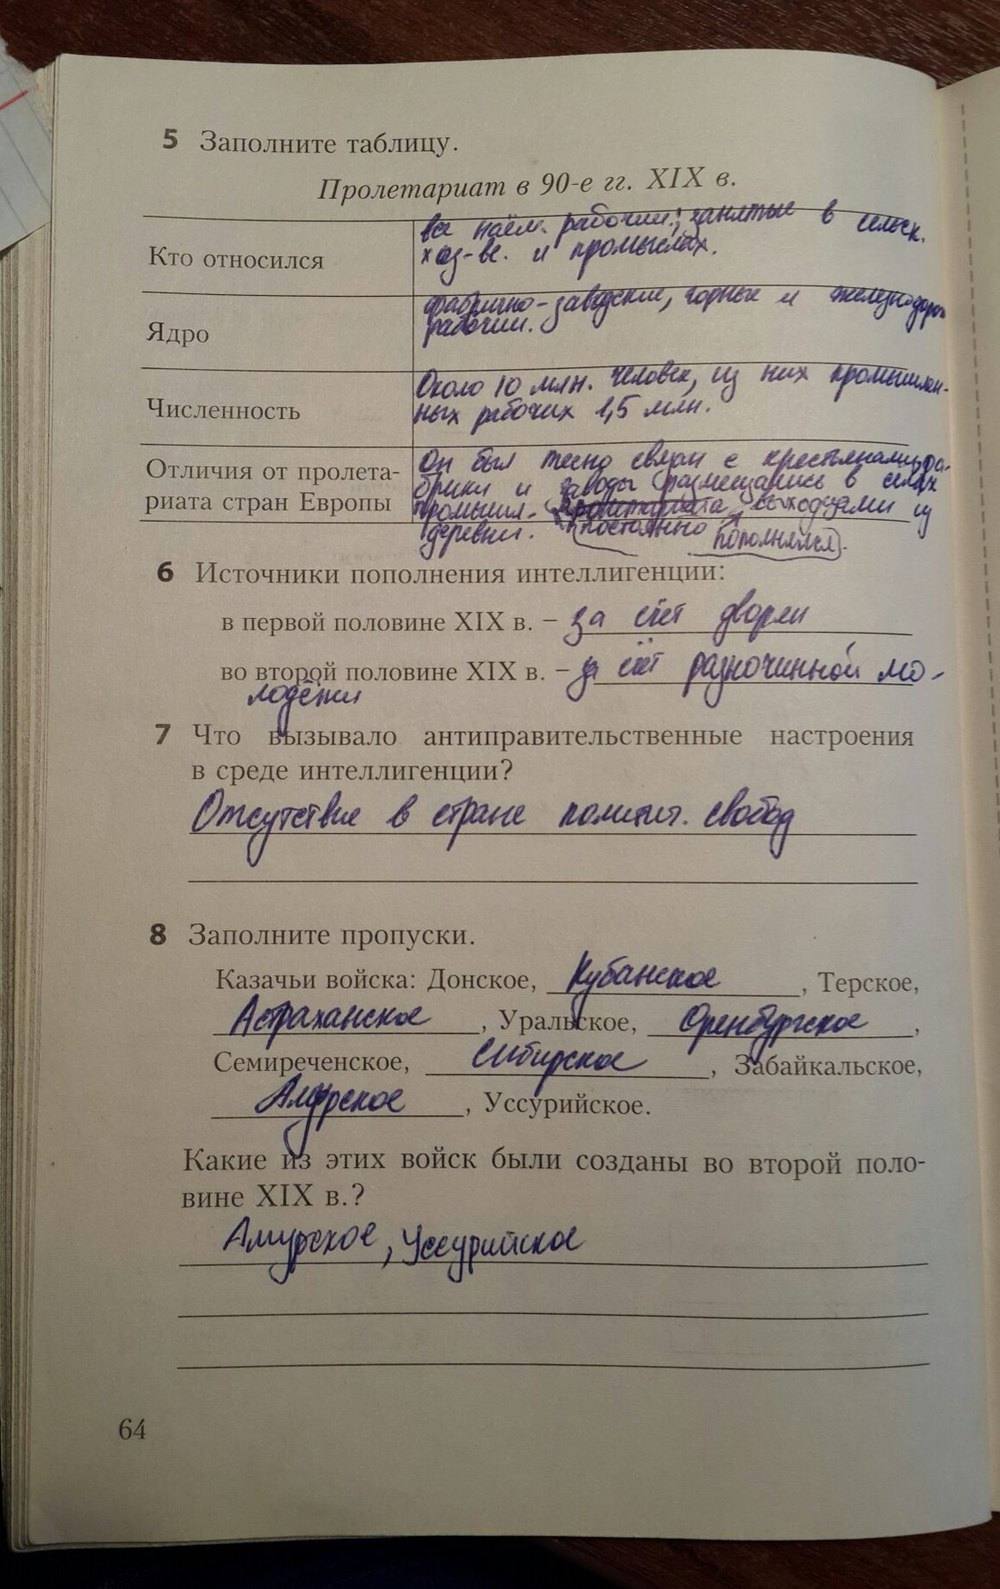 5 Заполните таблицу.
Пролетариат в 90-е гг. XIX в.
Кто относился
все наём. рабочии; занятые в сельск.
хоз-ве. и промыслах.
Ядро
фабрично-заводские, горные и железнодорож
рабочии.
Численность
Около 10 млн. человек, из них промышлен-
ных рабочих 1,5 млн.
Отличия от пролета-
риата стран Европы
Он был тесно связан с крестьянами, фа-
брики и заводы размещались в сёлах
промышл. пролетариата выходцами из
деревни. постоянно пополнялся.
6 Источники пополнения интеллигенции:
в первой половине XIX в. – за счёт дворян
во второй половине XIX в. – за счёт разночинной мо-
лодёжи
7 Что вызывало антиправительственные настроения
в среде интеллигенции?
Отсутствие в стране полит. свобод
8 Заполните пропуски.
Казачьи войска: Донское, Кубанское, Терское,
Астраханское, Уральское, Оренбургское,
Семиреченское, Сибирское, Забайкальское,
Амурское, Уссурийское.
Какие из этих войск были созданы во второй поло-
вине XIX в.?
Амурское, Уссурийское
64